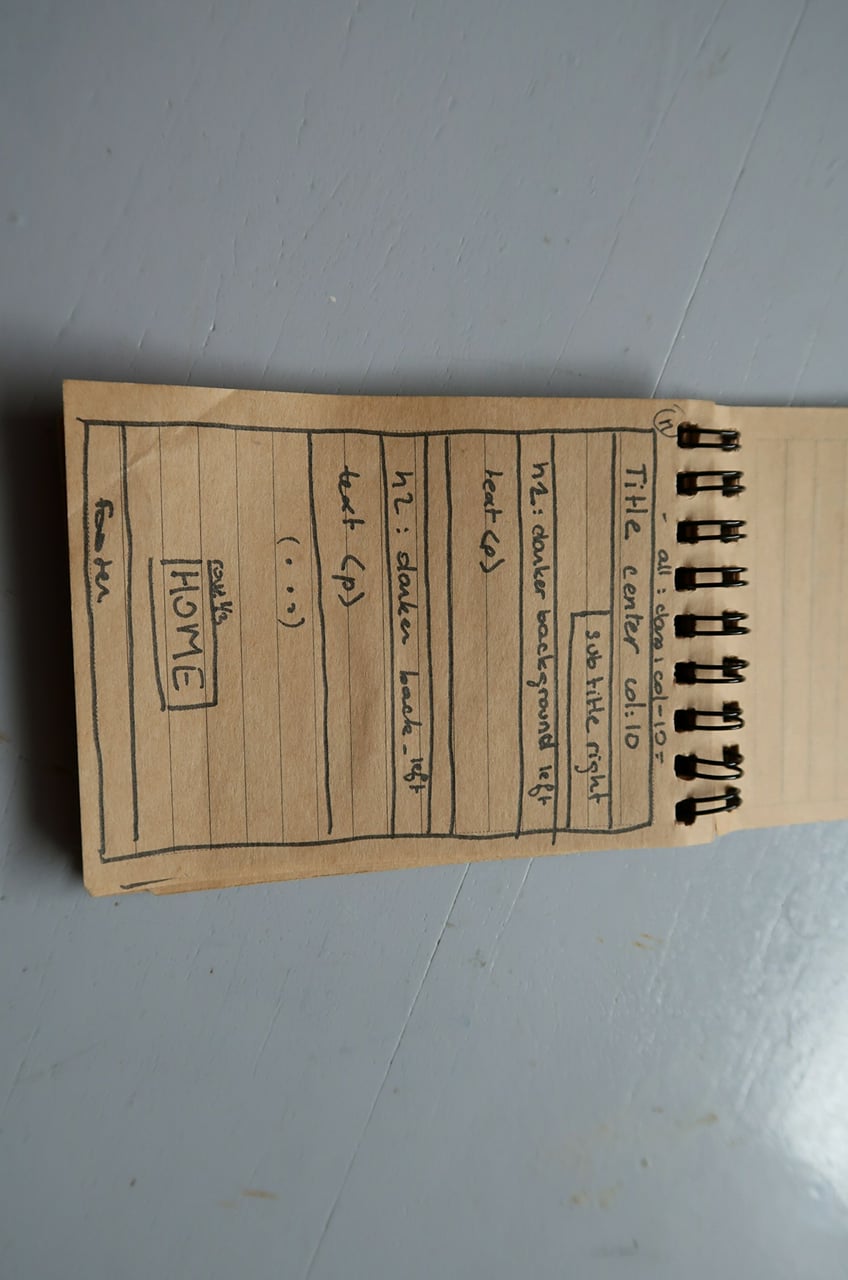 - all : dans : col-10 =
Title center col:10
subtitle right
h2 : darker background left
text (p)
h2 : darker back_left
text (p)
(...)
HOME
footer